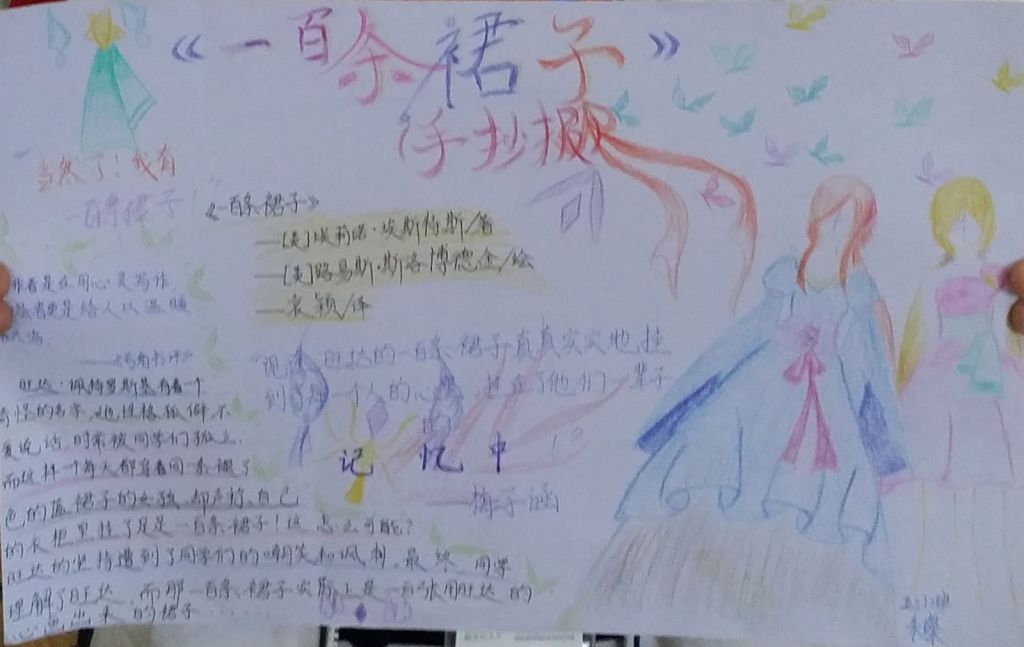 《一百条裙子》
手抄报
当然了！我有
一百条裙子
《一百条裙子》
—[美]埃莉诺·埃斯特斯/著
—[美]路易斯·斯洛博德金/绘
—袁颖/译
作者是在用心灵写作，
绘者更是给人以温暖
现在，旺达的一百条裙子真真实实地挂
到了每一个人的心里，挂在了他们一辈子
的
记忆中
—梅子涵
旺达·佩特罗斯基有着一个
奇怪的名字，她性格孤僻不
爱说话，时常被同学们孤立，
而这样一个每天都穿着同一条褪了
色的蓝裙子的女孩，却声称自己
的衣柜里挂了足足一百条裙子！这怎么可能？
旺达的坚持遭到了同学们的嘲笑和讽刺。最终，同学
理解了旺达，而那一百条裙子实际上是一百张用旺达的
心画出来的裙子……